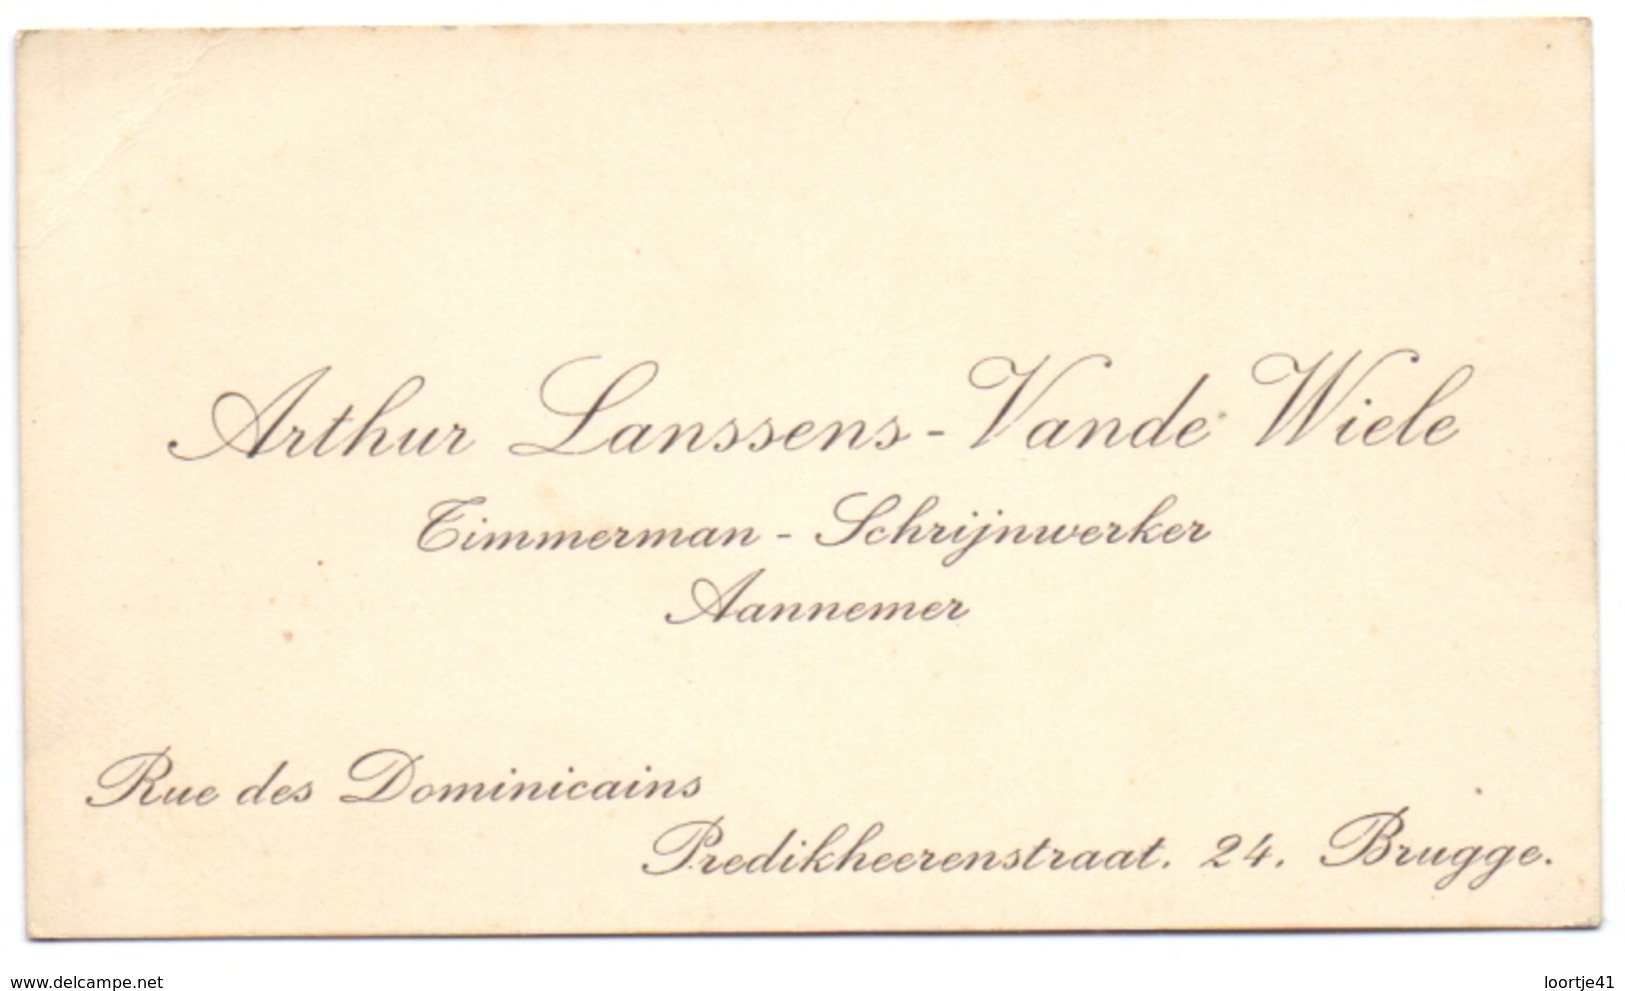 Arthur Lanssens-Vande Wiele
Timmerman - Schrijnwerker
Aannemer
Rue des Dominicains
Predikheerenstraat. 24. Brugge.
www.delcampe.net
loortje41